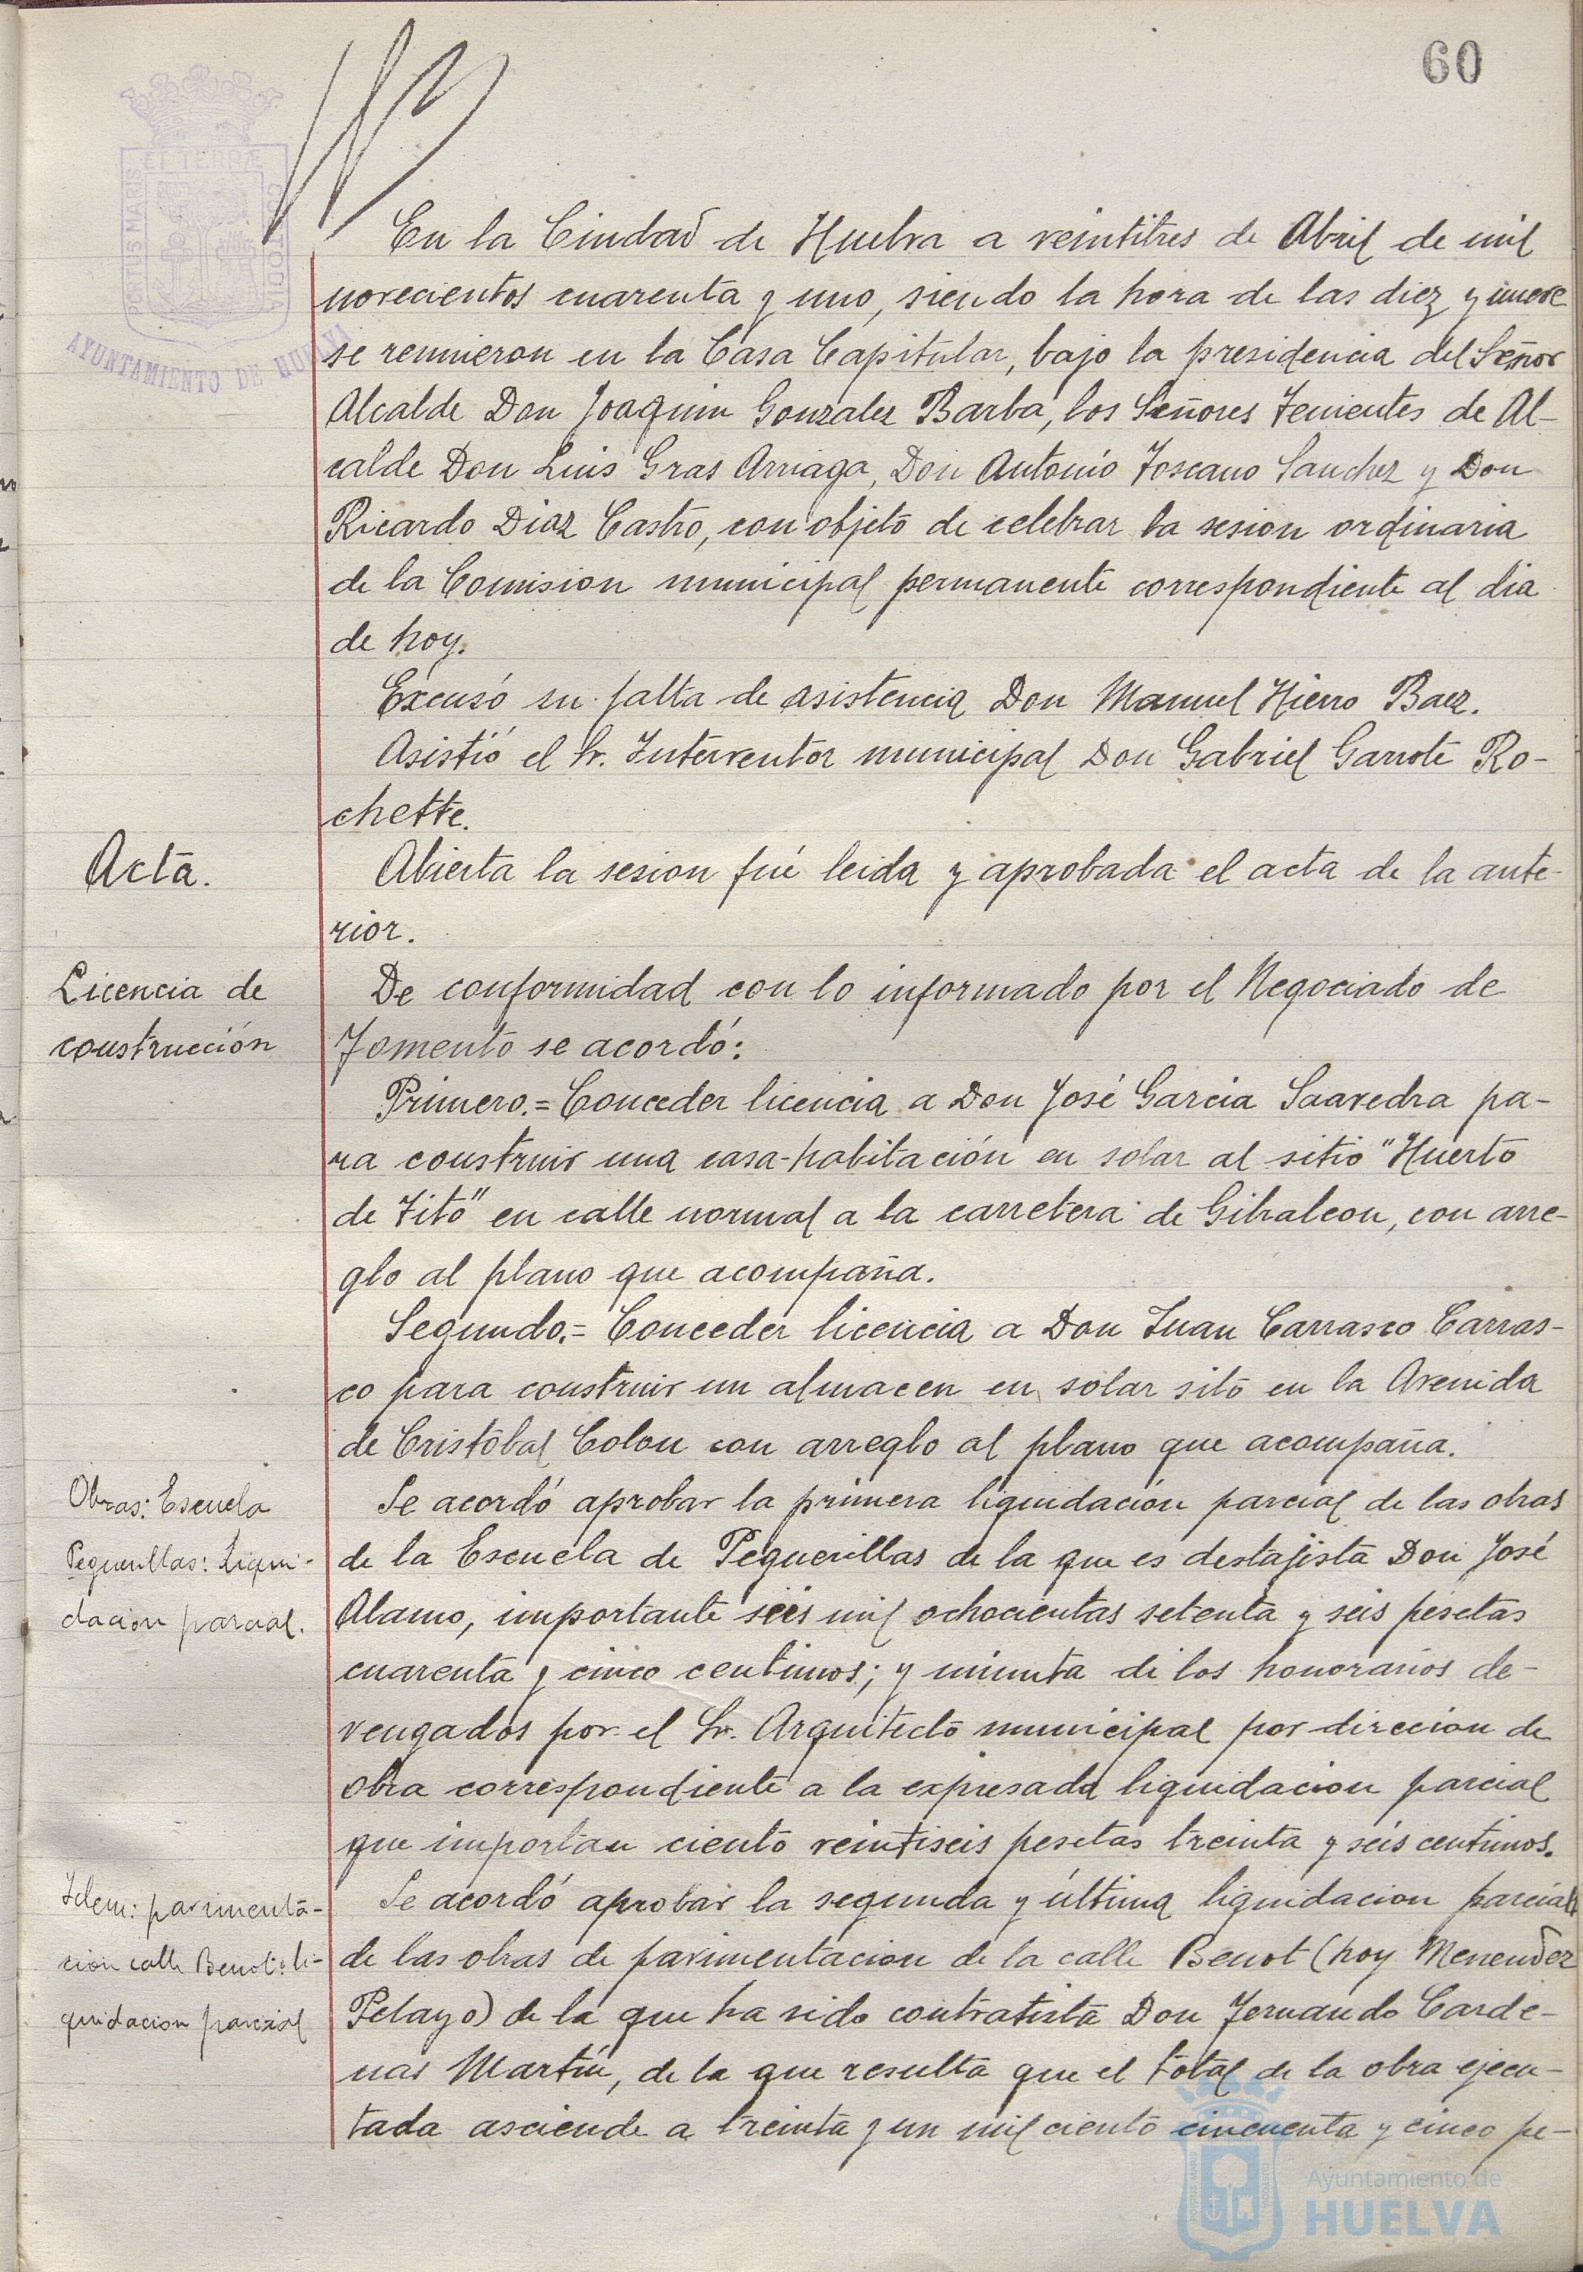 60
PORTUS MARIS
ET TERRÆ
CUSTODIA
AYUNTAMIENTO DE HUELVA
En la Ciudad de Huelva a veintitres de Abril de mil
novecientos cuarenta y uno, siendo la hora de las diez y nueve
se reunieron en la Casa Capitular, bajo la presidencia del Señor
Alcalde Don Joaquin Gonzalez Barba, los Señores Tenientes de Al-
calde Don Luis Gras Arriaga, Don Antonio Toscano Sanchez y Don
Ricardo Diaz Castro, con objeto de celebrar la sesion ordinaria
de la Comision municipal permanente correspondiente al dia
de hoy.
Excusó su falta de asistencia Don Manuel Hierro Baez.
Asistió el Sr. Interventor municipal Don Gabriel Garrote Ro-
chette.
Acta.
Abierta la sesion fué leida y aprobada el acta de la ante-
rior.
Licencia de
construcción
De conformidad con lo informado por el Negociado de
Fomento se acordó:
Primero.= Conceder licencia a Don José Garcia Saavedra pa-
ra construir una casa-habitación en solar al sitio "Huerto
de Tito" en calle normal a la carretera de Gibraleon, con arre-
glo al plano que acompaña.
Segundo.= Conceder licencia a Don Juan Carrasco Carras-
co para construir un almacen en solar sito en la Avenida
de Cristóbal Colon con arreglo al plano que acompaña.
Obras: Escuela
Peguerillas: Liqui-
dacion parcial.
Se acordó aprobar la primera liquidación parcial de las obras
de la Escuela de Peguerillas de la que es destajista Don José
Alamo, importante seis mil ochocientas setenta y seis pesetas
cuarenta y cinco centimos; y minuta de los honorarios de-
vengados por el Sr. Arquitecto municipal por direccion de
obra correspondiente a la expresada liquidacion parcial
que importan ciento veintiseis pesetas treinta y seis centimos.
Idem: pavimenta-
cion calle Benot: li-
quidacion parcial
Se acordó aprobar la segunda y última liquidacion parcial
de las obras de pavimentacion de la calle Benot (hoy Menendez
Pelayo) de la que ha sido contratista Don Fernando Carde-
nas Martín, de la que resulta que el total de la obra ejecu-
tada asciende a treinta y un mil ciento cincuenta y cinco pe-
Ayuntamiento de
HUELVA